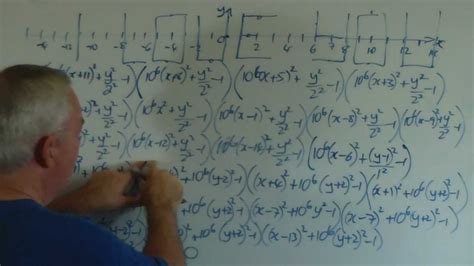 y
-14 -12 -10 -8 -6 -4 -2 0 2 4 6 8 10 12 14 16 x
(x+11)²+y²/2²-1)(10⁶(x+6)²+y²/2²-1)(10⁶(x+5)²+y²/2²-1)(10⁶(x+3)²+y²/2²-1)
-1)(10⁶x²+y²/2²-1)(10⁶(x-1)²+y²/2²-1)(10⁶(x-8)²+y²/2²-1)(10⁶(x-9)²+y²/2²-1)
-1)(10⁶(x-12)²+y²/2²-1)(10⁶(x-14)²+y²/2²-1)(10⁶(x-6)²+(y-1)²/1²-1)
)²+10⁶(y+2)²-1)(x+4)²+10⁶(y+2)²-1)(x+1)²+10⁶(y+2)²-1)
)²+10⁶(y+2)²-1)(x-7)²+10⁶y²-1)(x-7)²+10⁶(y+2)²-1)
)²+10⁶(y+2)²-1)(x-13)²+10⁶(y+2)²-1)
0